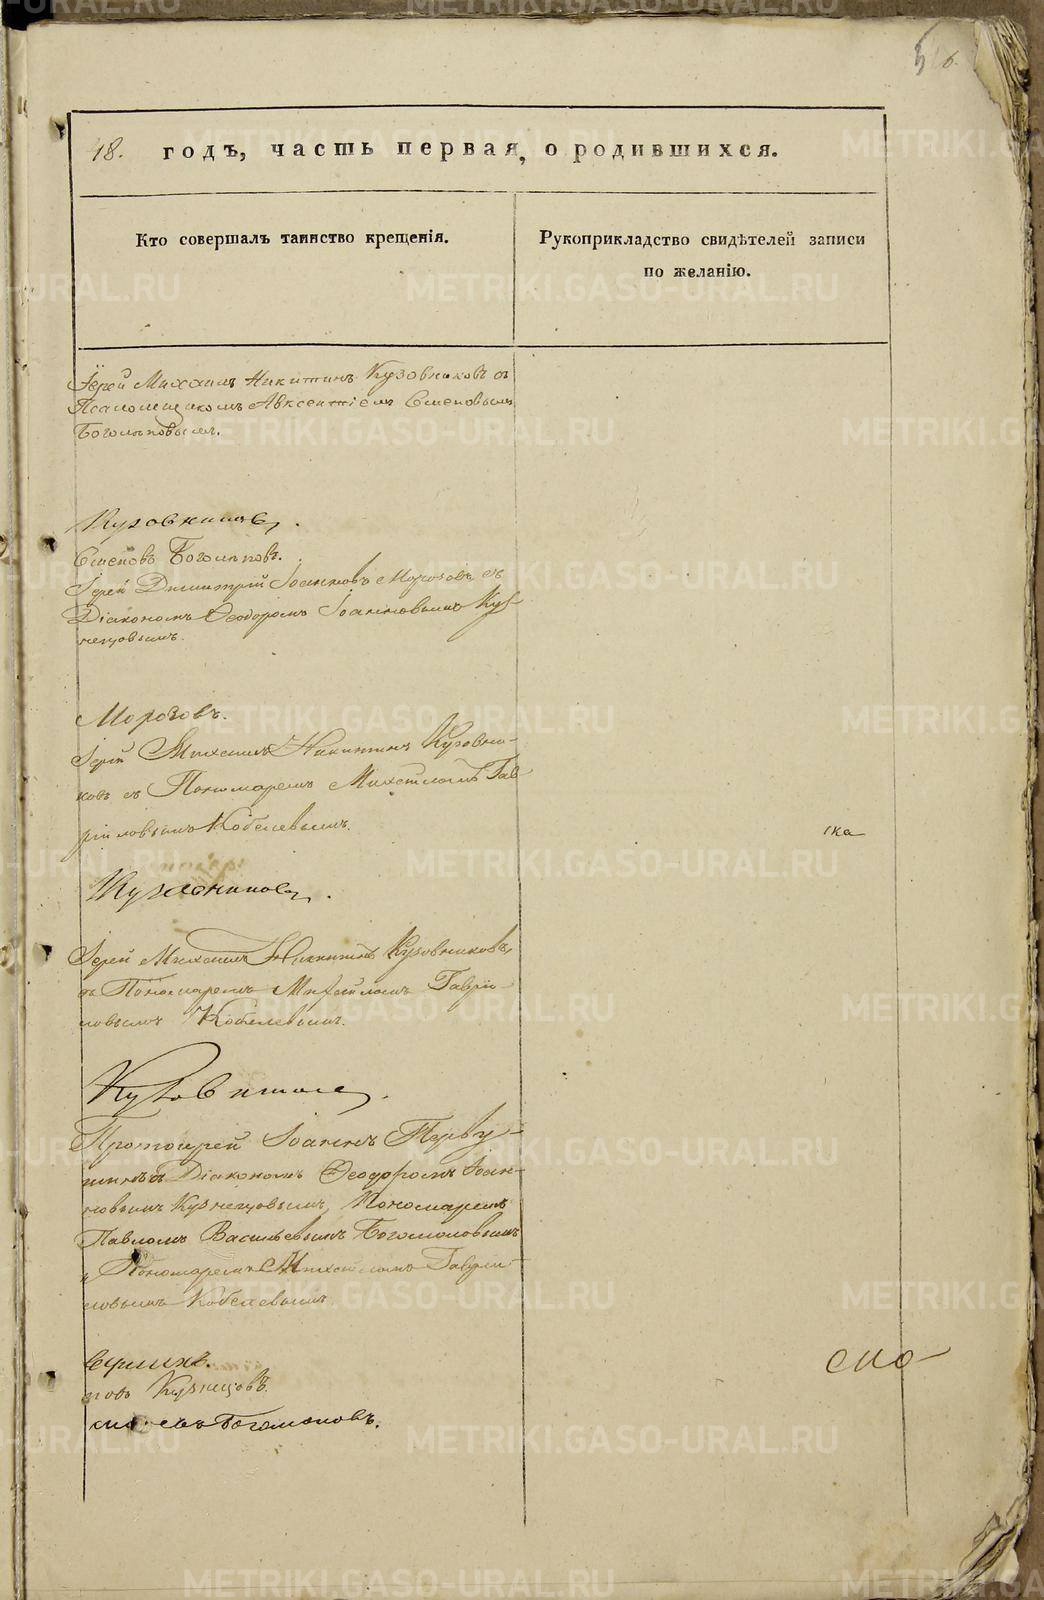 48. годъ, часть первая, о родившихся.
Кто совершалъ таинство крещенія.
Рукоприкладство свидѣтелей записи
по желанію.
Іерей Михаилъ Никитинъ Кузовниковъ съ
Псаломщикомъ Авксентіемъ Семеновымъ
Богомоловымъ.
Кузовниковъ.
Семеновъ Богомоловъ.
Іерей Димитрій Іоанновъ Морозовъ съ
Діакономъ Ѳеодоромъ Іоанновымъ Куз-
нецовымъ.
Морозовъ.
Іерей Михаилъ Никитинъ Кузовни-
ковъ съ Пономаремъ Михаиломъ Гав
ріиловымъ Кобелевымъ.
ка
Кузовниковъ.
Іерей Михаилъ Никитинъ Кузовниковъ,
съ Пономаремъ Михаиломъ ГаврІи-
ловымъ Кобелевымъ.
Кузовников.
Протоіерей Іоаннъ Перву-
шинъ съ Діакономъ Ѳеодоромъ Іоан-
новымъ Кузнецовымъ, Пономаремъ
Павломъ Васильевымъ Богомоловымъ
и Пономаремъ Михаиломъ ГаврІи-
ловымъ Кобелевымъ
вушинъ.
новъ Кузнецовъ.
Богомоловъ.
ско
METRIKI.GASO-URAL.RU